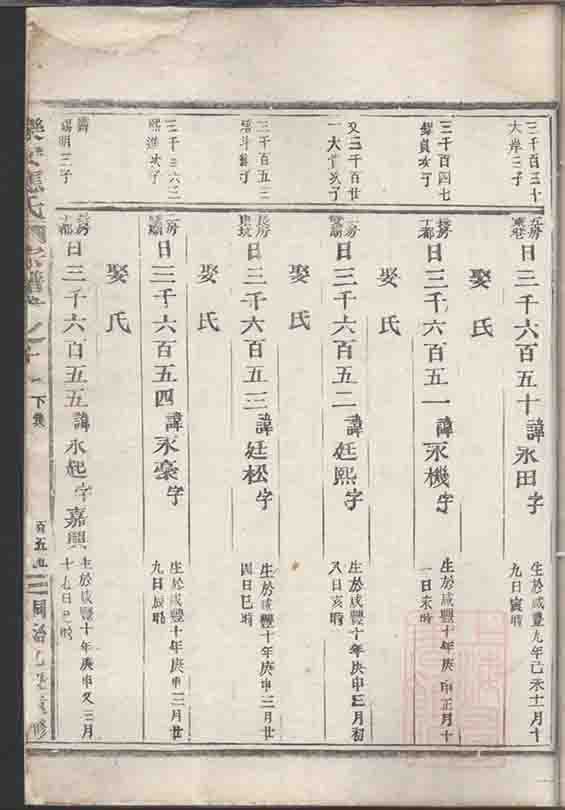 三千百三十
大岸三子
五房
日三千六百五十諱永田字
生於咸豐九年己未十一月十
九日寅時
娶氏
三千百四七
次子
長房
十都
日三千六百五一諱永機字
生於咸豐十年庚申正月十
一日未時
娶氏
又三千百廿
一大 次子
二房
日三千六百五二諱廷熙字
生於咸豐十年庚申三月初
八日亥時
娶氏
三千百五三
長房
日三千六百五三諱廷松字
生於咸豐十年庚申三月廿
四日巳時
娶氏
三千三六二
熙進次子
二房
日三千六百五四諱永豪字
生於咸豐十年庚申三月廿
九日辰時
娶氏
錫明三子
長房
十都
日三千六百五五諱永起字嘉興
生於咸豐十年庚申又三月
十七日巳時
應氏宗譜
下集
百五
同治 修